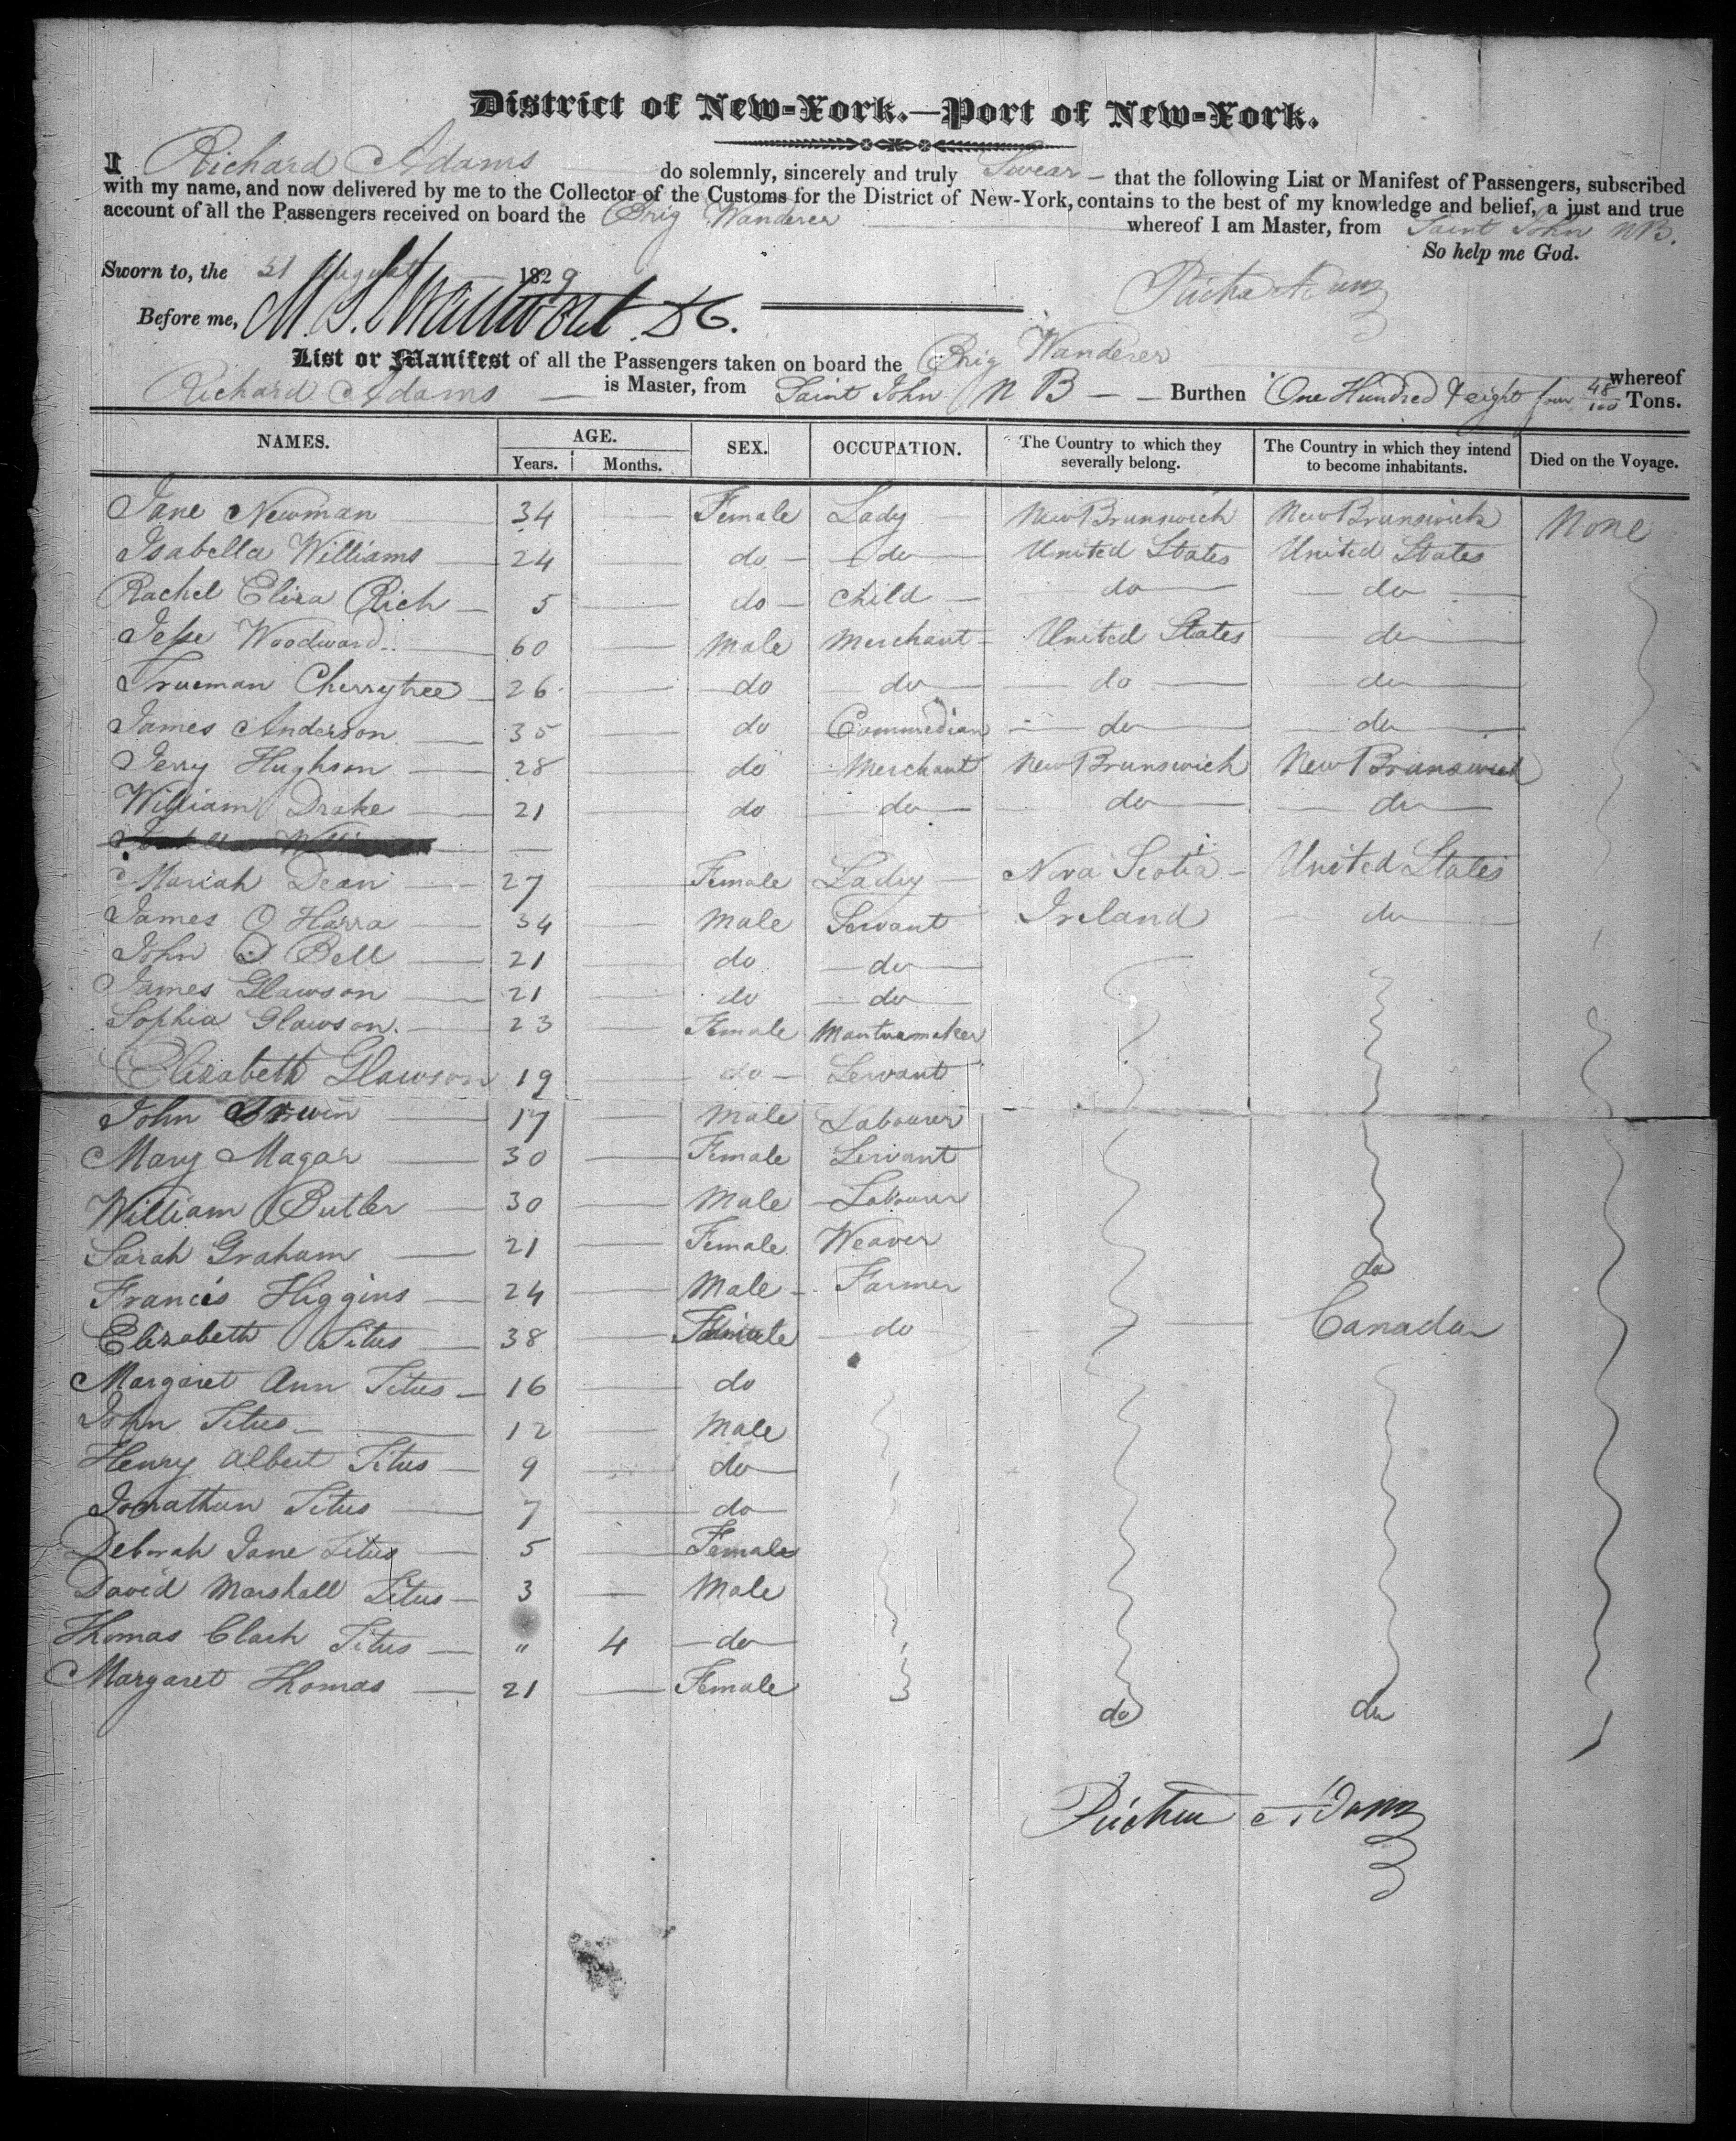 District of New-York.—Port of New-York.
I Richard Adams do solemnly, sincerely and truly Swear – that the following List or Manifest of Passengers, subscribed
with my name, and now delivered by me to the Collector of the Customs for the District of New-York, contains to the best of my knowledge and belief, a just and true
account of all the Passengers received on board the Brig Wanderer whereof I am Master, from Saint John NB.
So help me God.
Sworn to, the 31 August 1829
Before me,
List or Manifest of all the Passengers taken on board the Brig Wanderer whereof
Richard Adams is Master, from Saint John N B – – Burthen One Hundred & eight four 48/100 Tons.
NAMES. AGE. SEX. OCCUPATION. The Country to which they severally belong. The Country in which they intend to become inhabitants. Died on the Voyage.
Years. Months.
Jane Newman 34 Female Lady New Brunswick New Brunswick None
Isabella Williams 24 do do United States United States
Rachel Eliza Rich 5 do Child do do
Jesse Woodward 60 Male Merchant United States do
Trueman Cherrytree 26 do do do do
James Anderson 35 do Commedian do do
Jerry Hughson 28 do Merchant New Brunswick New Brunswick
William Drake 21 do do do do
Mariah Dean 27 Female Lady Nova Scotia United States
James O Harra 34 Male Servant Ireland do
John O Bell 21 do do
James Glawson 21 do do
Sophia Glawson 23 Female Mantuamaker
Elizabeth Glawson 19 do Servant
John Erwin 17 Male Labourer
Mary Magar 30 Female Servant
William Butler 30 Male Labourer
Sarah Graham 21 Female Weaver
Francis Higgins 24 Male Farmer do
Elizabeth Titus 38 Female do Canada
Margaret Ann Titus 16 do
John Titus 12 Male
Henry Albert Titus 9 do
Jonathan Titus 7 do
Deborah Jane Titus 5 Female
David Marshall Titus 3 Male
Thomas Clark Titus " 4 do
Margaret Thomas 21 Female do do